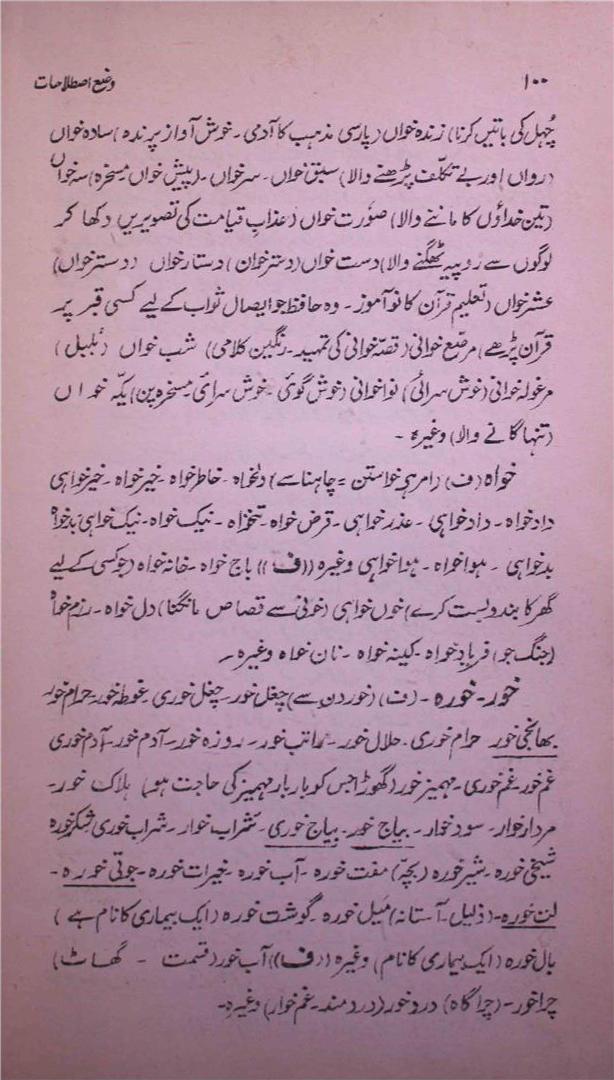 ۱۰۰ وضع اصطلاحات
چُہل کی باتیں کرنا) زندہ خواں (پارسی مذہب کا آدمی۔ خوش آواز پرندہ) سادہ خواں
(رواں اور بے تکلّف پڑھنے والا) سبق خواں۔ سرخواں۔ (پیش خواں مسخرہ) سہ خواں
(تین خداؤں کا ماننے والا) صوُرت خواں (عذابِ قیامت کی تصویریں دکھا کر
لوگوں سے روپیہ ٹھگنے والا) دست خواں (دسترخوان) دستار خواں (دسترخواں)
عشر خواں (تعلیم قرآن کا نو آموز۔ وہ حافظ جو ایصال ثواب کے لیے کسی قبر پر
قرآن پڑھے) مرصّع خوانی (قصّہ خوانی کی تمہید۔ رنگین کلامی) شب خواں (بُلبل)
مرغولہ خوانی (خوش سرائی) نوا خوانی (خوش گوئی۔ خوش سرائی۔ مسخرہ پن) یکّہ خواں
(تنہا گانے والا) وغیرہ۔
خواہ (ف) (امر ہی خواستن = چاہنا سے) دلخواہ۔ خاطر خواہ۔ خیر خواہ۔ خیر خواہی
داد خواہ۔ داد خواہی۔ عذر خواہی۔ قرض خواہ۔ تنخواہ۔ نیک خواہ۔ نیک خواہی۔ بدخواہ
بدخواہی۔ ہوا خواہ۔ ہوا خواہی وغیرہ ((ف)) باج خواہ۔ خانہ خواہ (جو کسی کے لیے
گھر کا بندوبست کرے) خوں خواہی (خونی سے قصاص مانگنا) دل خواہ۔ رزم خواہ
(جنگ جو) فریاد خواہ۔ کینہ خواہ۔ نان خواہ وغیرہ۔
خور۔ خورہ۔ (ف) (خوردن سے) چغل خور۔ چغل خوری۔ غوطہ خور۔ حرام خور
بھانجی خور حرام خوری۔ حلال خور۔ راتب خور۔ روزہ خور۔ آدم خور۔ آدم خوری
غم خور۔ غم خوری۔ مہمیز خور (گھوڑا جس کو بار بار مہمیز کی حاجت ہو) ہلاک خور۔
مردار خوار۔ سود خوار۔ بیاج خور۔ بیاج خوری۔ شراب خوار۔ شراب خوری شکر خورہ
شیخی خورہ۔ شیر خورہ (بچّہ) مفت خورہ۔ آب خورہ۔ خیرات خورہ۔ جوتی خورہ۔
لت خورہ۔ (ذلیل۔ آستانہ) میل خورہ۔ گوشت خورہ (ایک بیماری کا نام ہے)
بال خورہ (ایک بیماری کا نام) وغیرہ ((ف)) آب خور (قسمت ۔ گھاٹ)
چراخور۔ (چراگاہ) درد خور (دردمند۔ غم خوار) وغیرہ۔